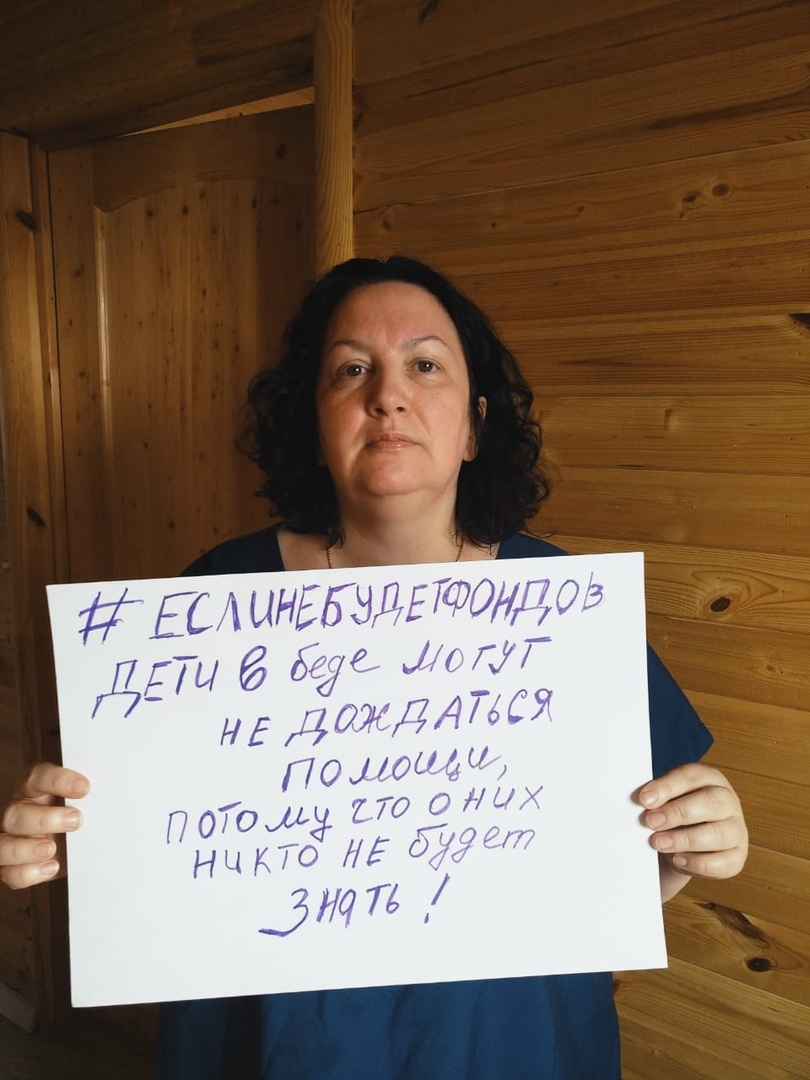 #ЕСЛИНЕБУДЕТФОНДОВ
ДЕТИ В беде МОГУТ
НЕ ДОЖДАТЬСЯ
ПОМОЩИ,
ПОТОМУ ЧТО О НИХ
НИКТО НЕ будет
ЗНАТЬ!